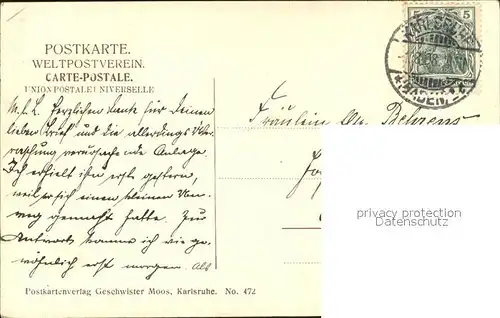 POSTKARTE.
WELTPOSTVEREIN.
CARTE-POSTALE.
UNION POSTALE UNIVERSELLE
5 5
BADEN
M. l. L. Herzlichen Dank für Deinen
lieben Brief und die allerdings Über-
raschung verursachende Anlage.
Ich erhielt ihn erst gestern,
weil er sich einen kleinen Um-
weg gemacht hatte. Zur
Antwort komme ich wie ge-
wöhnlich erst morgen. Als
Fräulein Behrens
privacy protection
Datenschutz
Postkartenverlag Geschwister Moos, Karlsruhe. No. 472